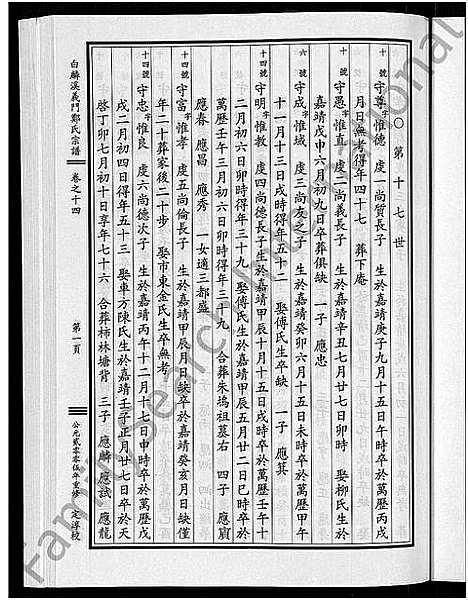 〇第十七世
十號 守尊 字惟德 虔一尚質長子 生於嘉靖庚子九月十五日午時卒於萬歷丙戌
月日無考得年四十七 葬下庵
十號 守愚 字惟直 虔二尚義長子 生於嘉靖辛丑七月廿七日卯時 娶柳氏生於
嘉靖戊申六月初九日卒葬俱缺 一子 應忠
六號 守成 字惟城 虔三尚友之子 生於嘉靖癸卯六月十五日未時卒於萬歷甲午
十一月十三日戌時得年五十二 娶傅氏生卒缺 一子 應箕
十四號 守明 字惟教 虔四尚德長子 生於嘉靖甲辰十月十五日戌時卒於萬歷壬午十
二月初六日卯時得年三十九 娶傅氏生於嘉靖甲辰五月廿二日巳時卒於
萬歷壬午三月初六日卯時得年三十九 合葬朱塢祖墓右 四子 應寅
應春 應昌 應秀 一女適三都盛
十四號 守富 字惟孝 虔五尚倫長子 生於嘉靖甲辰月日缺卒於嘉靖癸亥月日缺僅
年二十葬家後二十步 娶市東金氏生卒無考
十四號 守忠 字惟良 虔六尚德次子 生於嘉靖丙午十二月十七日申時卒於萬歷戊
戌二月初四日得年五十三 娶車方陳氏生於嘉靖壬子正月廿七日卒於天
啓丁卯七月初十日享年七十六 合葬柿林塘背 三子 應麟 應試 應龍
白麟溪義門鄭氏宗譜
卷之十四
第一頁
公元貳零零伍年重修 定淳校
familysearch international